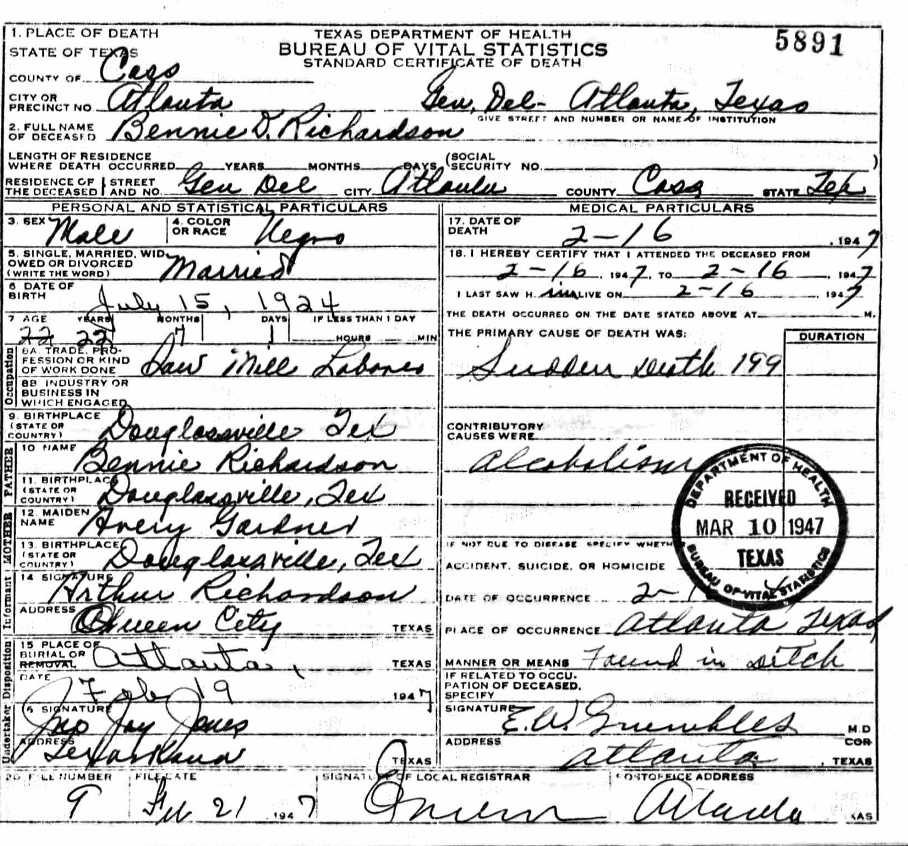 1. PLACE OF DEATH
STATE OF TEXAS
COUNTY OF Cass
TEXAS DEPARTMENT OF HEALTH
BUREAU OF VITAL STATISTICS
STANDARD CERTIFICATE OF DEATH
5891
CITY OR PRECINCT NO Atlanta Gen, Del- Atlanta, Texas
GIVE STREET AND NUMBER OR NAME OF INSTITUTION
2. FULL NAME OF DECEASED Bennie D. Richardson
LENGTH OF RESIDENCE
WHERE DEATH OCCURRED YEARS MONTHS DAYS (SOCIAL SECURITY NO. )
RESIDENCE OF THE DECEASED STREET AND NO. Gen Del CITY Atlanta COUNTY Cass STATE Tex
PERSONAL AND STATISTICAL PARTICULARS
3. SEX Male 4. COLOR OR RACE Negro
5. SINGLE, MARRIED, WIDOWED OR DIVORCED (WRITE THE WORD) Married
6 DATE OF BIRTH July 15, 1924
7 AGE YEARS MONTHS DAYS IF LESS THAN 1 DAY
22 22 7 1 HOURS MIN
Occupation
8A. TRADE, PROFESSION OR KIND OF WORK DONE Saw Mill Laborer
8B INDUSTRY OR BUSINESS IN WHICH ENGAGED
9. BIRTHPLACE (STATE OR COUNTRY) Douglassville Tex
FATHER
10 NAME Bennie Richardson
11. BIRTHPLACE (STATE OR COUNTRY) Douglassville, Tex
MOTHER
12. MAIDEN NAME Avery Gardner
13. BIRTHPLACE (STATE OR COUNTRY) Douglassville, Tex
Informant
14 SIGNATURE Arthur Richardson
ADDRESS Queen City TEXAS
Disposition
15 PLACE OF BURIAL OR REMOVAL Atlanta, TEXAS
DATE Feb 19 1947
Undertaker
SIGNATURE Jay Jones
ADDRESS Texarkana TEXAS
MEDICAL PARTICULARS
17. DATE OF DEATH 2-16, 1947
18. I HEREBY CERTIFY THAT I ATTENDED THE DECEASED FROM
2-16, 1947, TO 2-16, 1947
I LAST SAW H im ALIVE ON 2-16 1947
THE DEATH OCCURRED ON THE DATE STATED ABOVE AT M.
THE PRIMARY CAUSE OF DEATH WAS: DURATION
Sudden Death 199
CONTRIBUTORY CAUSES WERE:
Alcoholism
DEPARTMENT OF HEALTH
RECEIVED
MAR 10 1947
TEXAS
BUREAU OF VITAL STATISTICS
IF NOT DUE TO DISEASE SPECIFY WHETH
ACCIDENT, SUICIDE, OR HOMICIDE
DATE OF OCCURRENCE 2-1
PLACE OF OCCURRENCE Atlanta Texas
MANNER OR MEANS Found in Ditch
IF RELATED TO OCCUPATION OF DECEASED, SPECIFY
SIGNATURE E.W. Grumbles M.D
COR
ADDRESS Atlanta, TEXAS
FILE NUMBER FILE DATE SIGNATURE OF LOCAL REGISTRAR POSTOFFICE ADDRESS
9 Feb 21 1947 Atlanta